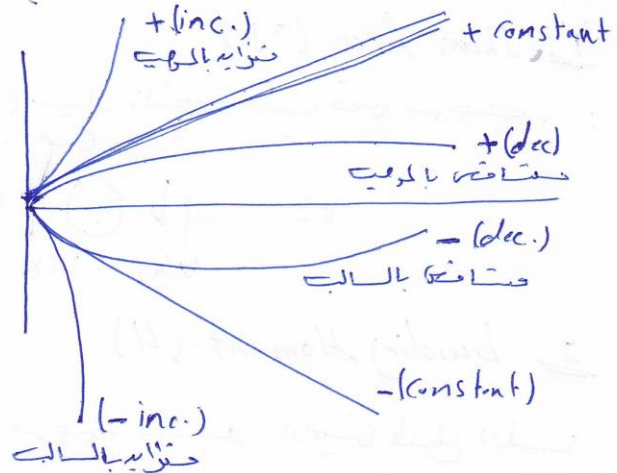 + (inc.)
متزايد بالموجب
+ constant
+ (dec)
متناقص بالموجب
- (dec.)
متناقص بالسالب
- (constant)
(- inc.)
متزايد بالسالب